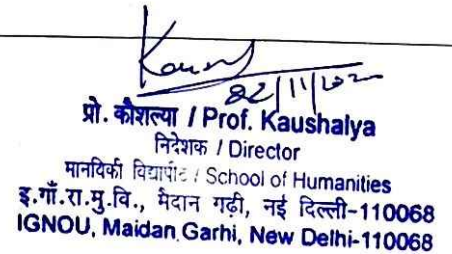 प्रो. कौशल्या / Prof. Kaushalya
निदेशक / Director
मानविकी विद्यापीठ / School of Humanities
इ.गाँ.रा.मु.वि., मैदान गढ़ी, नई दिल्ली-110068
IGNOU, Maidan Garhi, New Delhi-110068